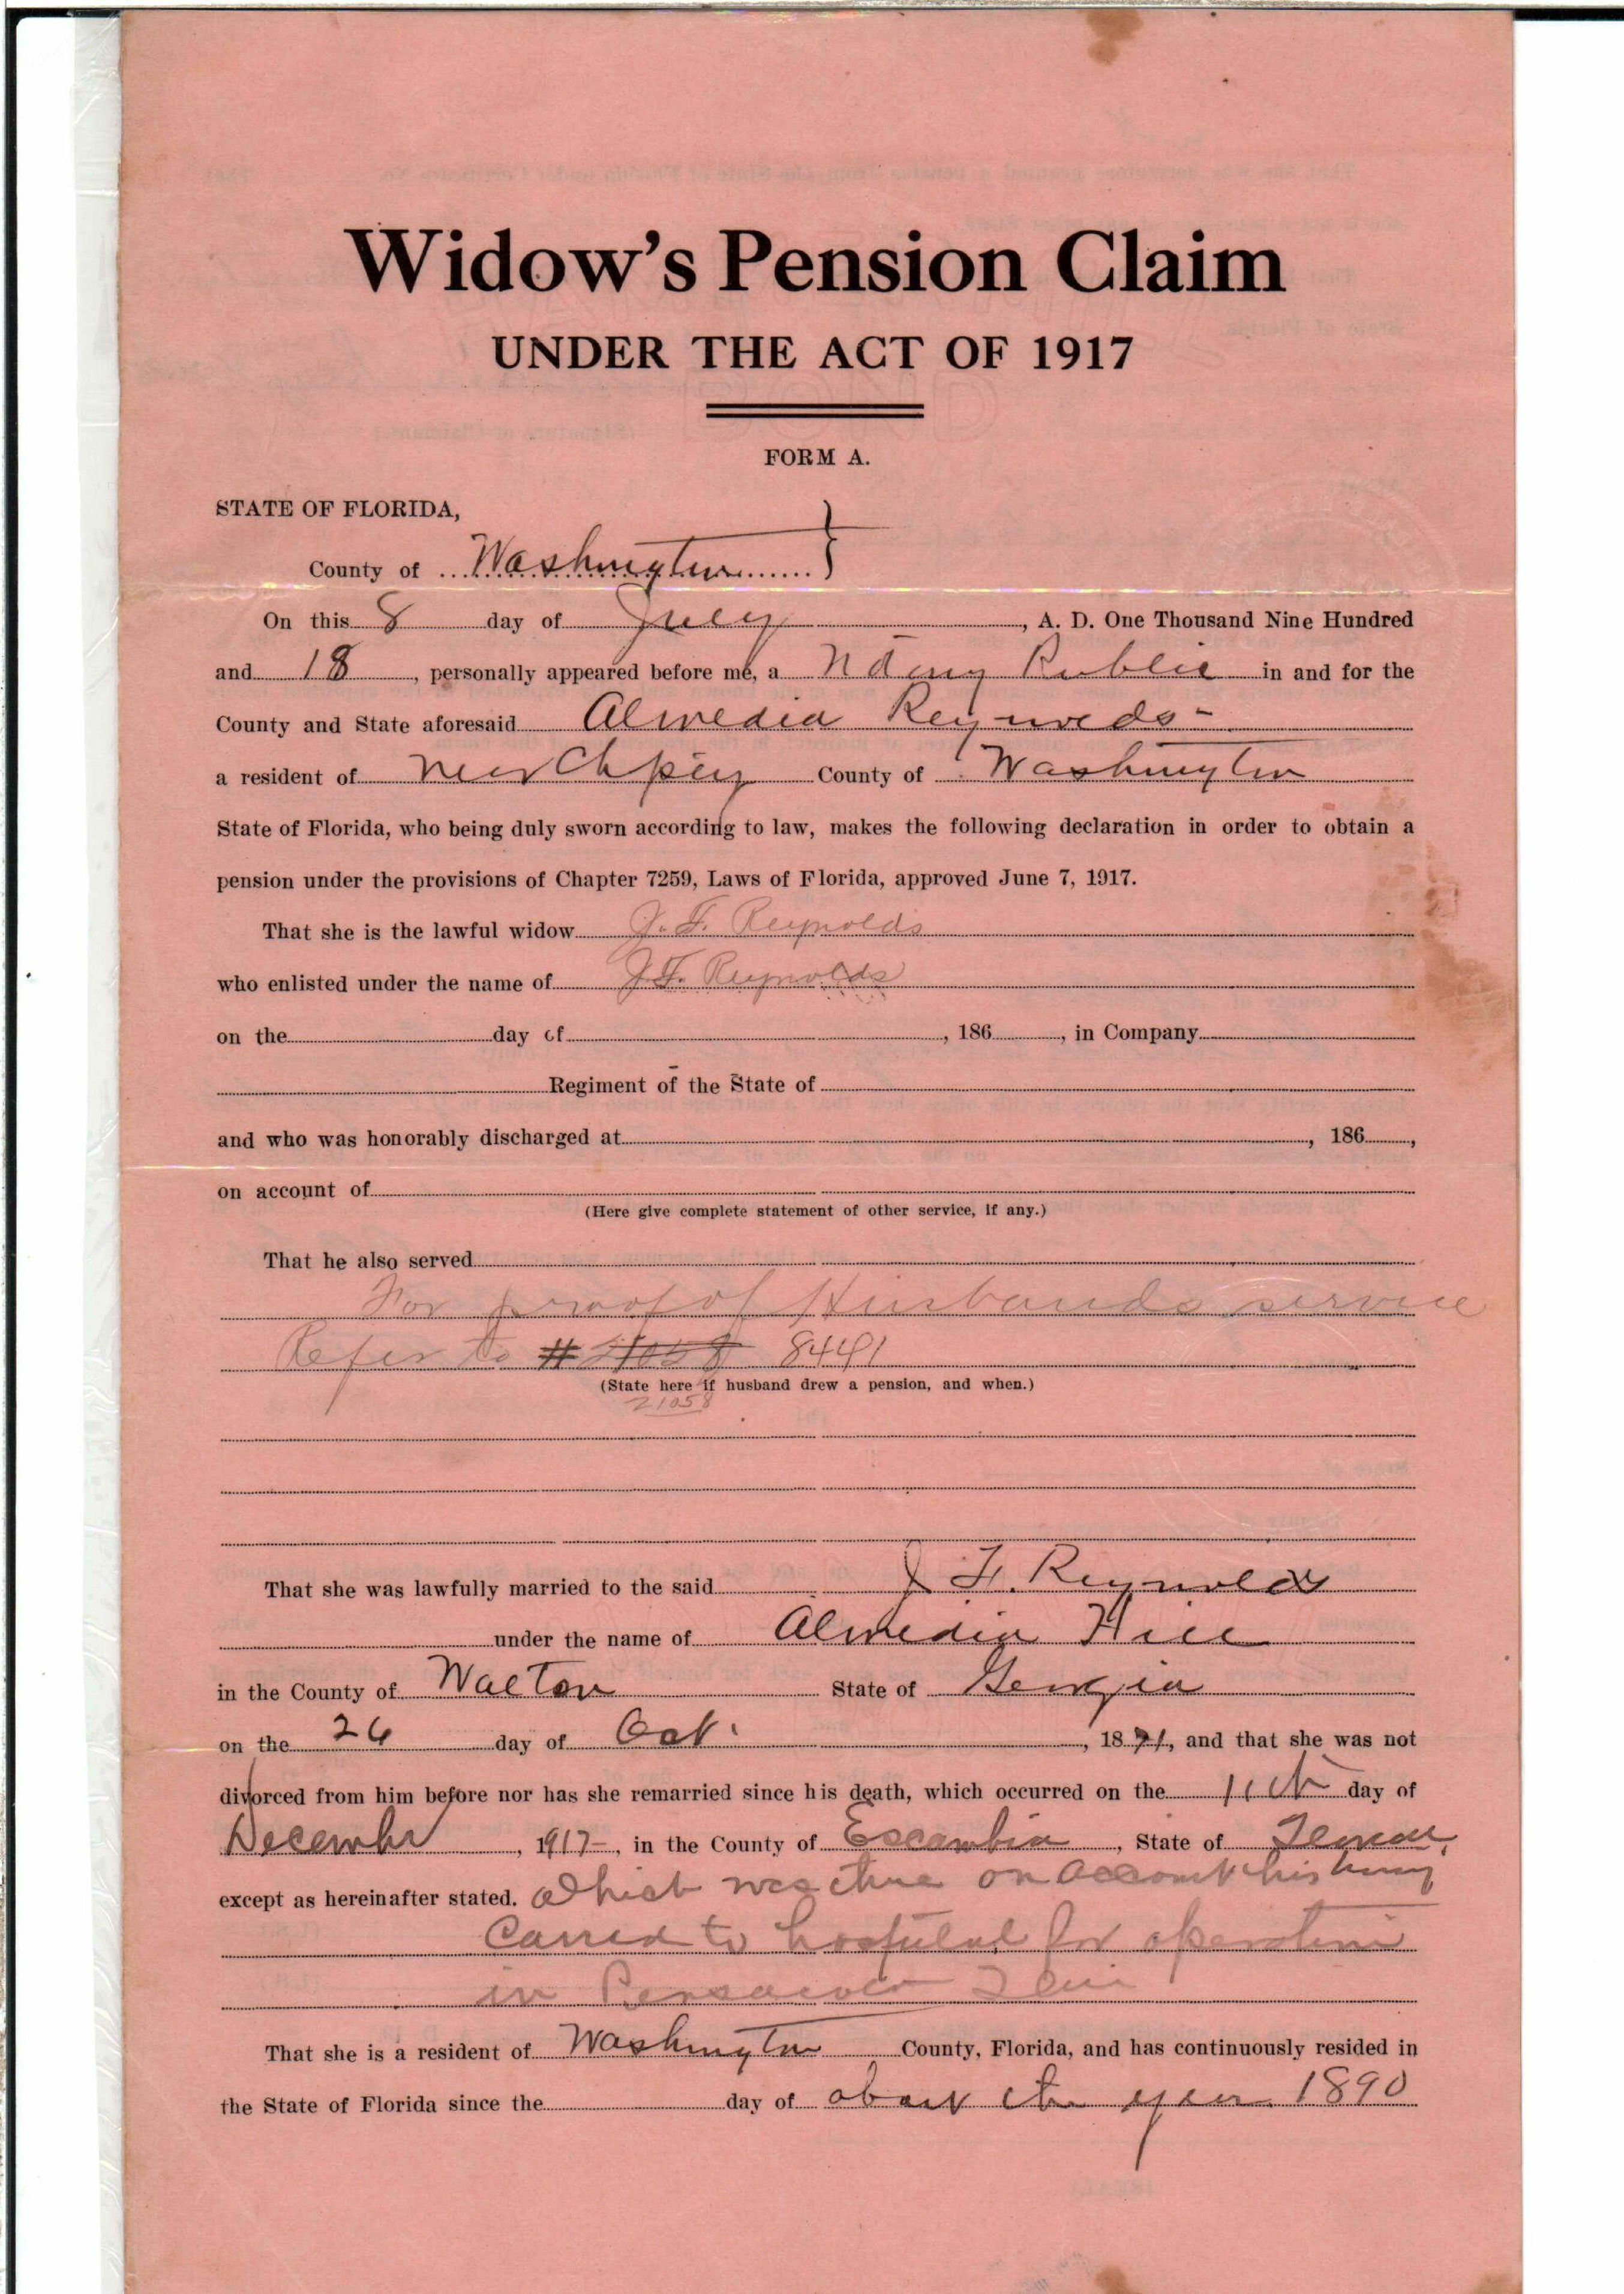 Widow's Pension Claim
UNDER THE ACT OF 1917
FORM A.
STATE OF FLORIDA,
County of Washington }
On this 8 day of July, A. D. One Thousand Nine Hundred
and 18, personally appeared before me, a Notary Public in and for the
County and State aforesaid Almedia Reynolds
a resident of near Chipley County of Washington
State of Florida, who being duly sworn according to law, makes the following declaration in order to obtain a
pension under the provisions of Chapter 7259, Laws of Florida, approved June 7, 1917.
That she is the lawful widow J. F. Reynolds
who enlisted under the name of J. F. Reynolds
on the day of , 186 , in Company
Regiment of the State of
and who was honorably discharged at , 186 ,
on account of
(Here give complete statement of other service, if any.)
That he also served
For proof of Husbands service
Refer to # 21058 8441
(State here if husband drew a pension, and when.)
21058
That she was lawfully married to the said J. F. Reynolds
under the name of Almedia Hill
in the County of Walton State of Georgia
on the 26 day of Oct. , 1871, and that she was not
divorced from him before nor has she remarried since his death, which occurred on the 11th day of
December , 1917, in the County of Escambia , State of
except as hereinafter stated. on account his being
Carried to hospital for operation
in Pensacola Fla
That she is a resident of Washington County, Florida, and has continuously resided in
the State of Florida since the day of about the year 1890